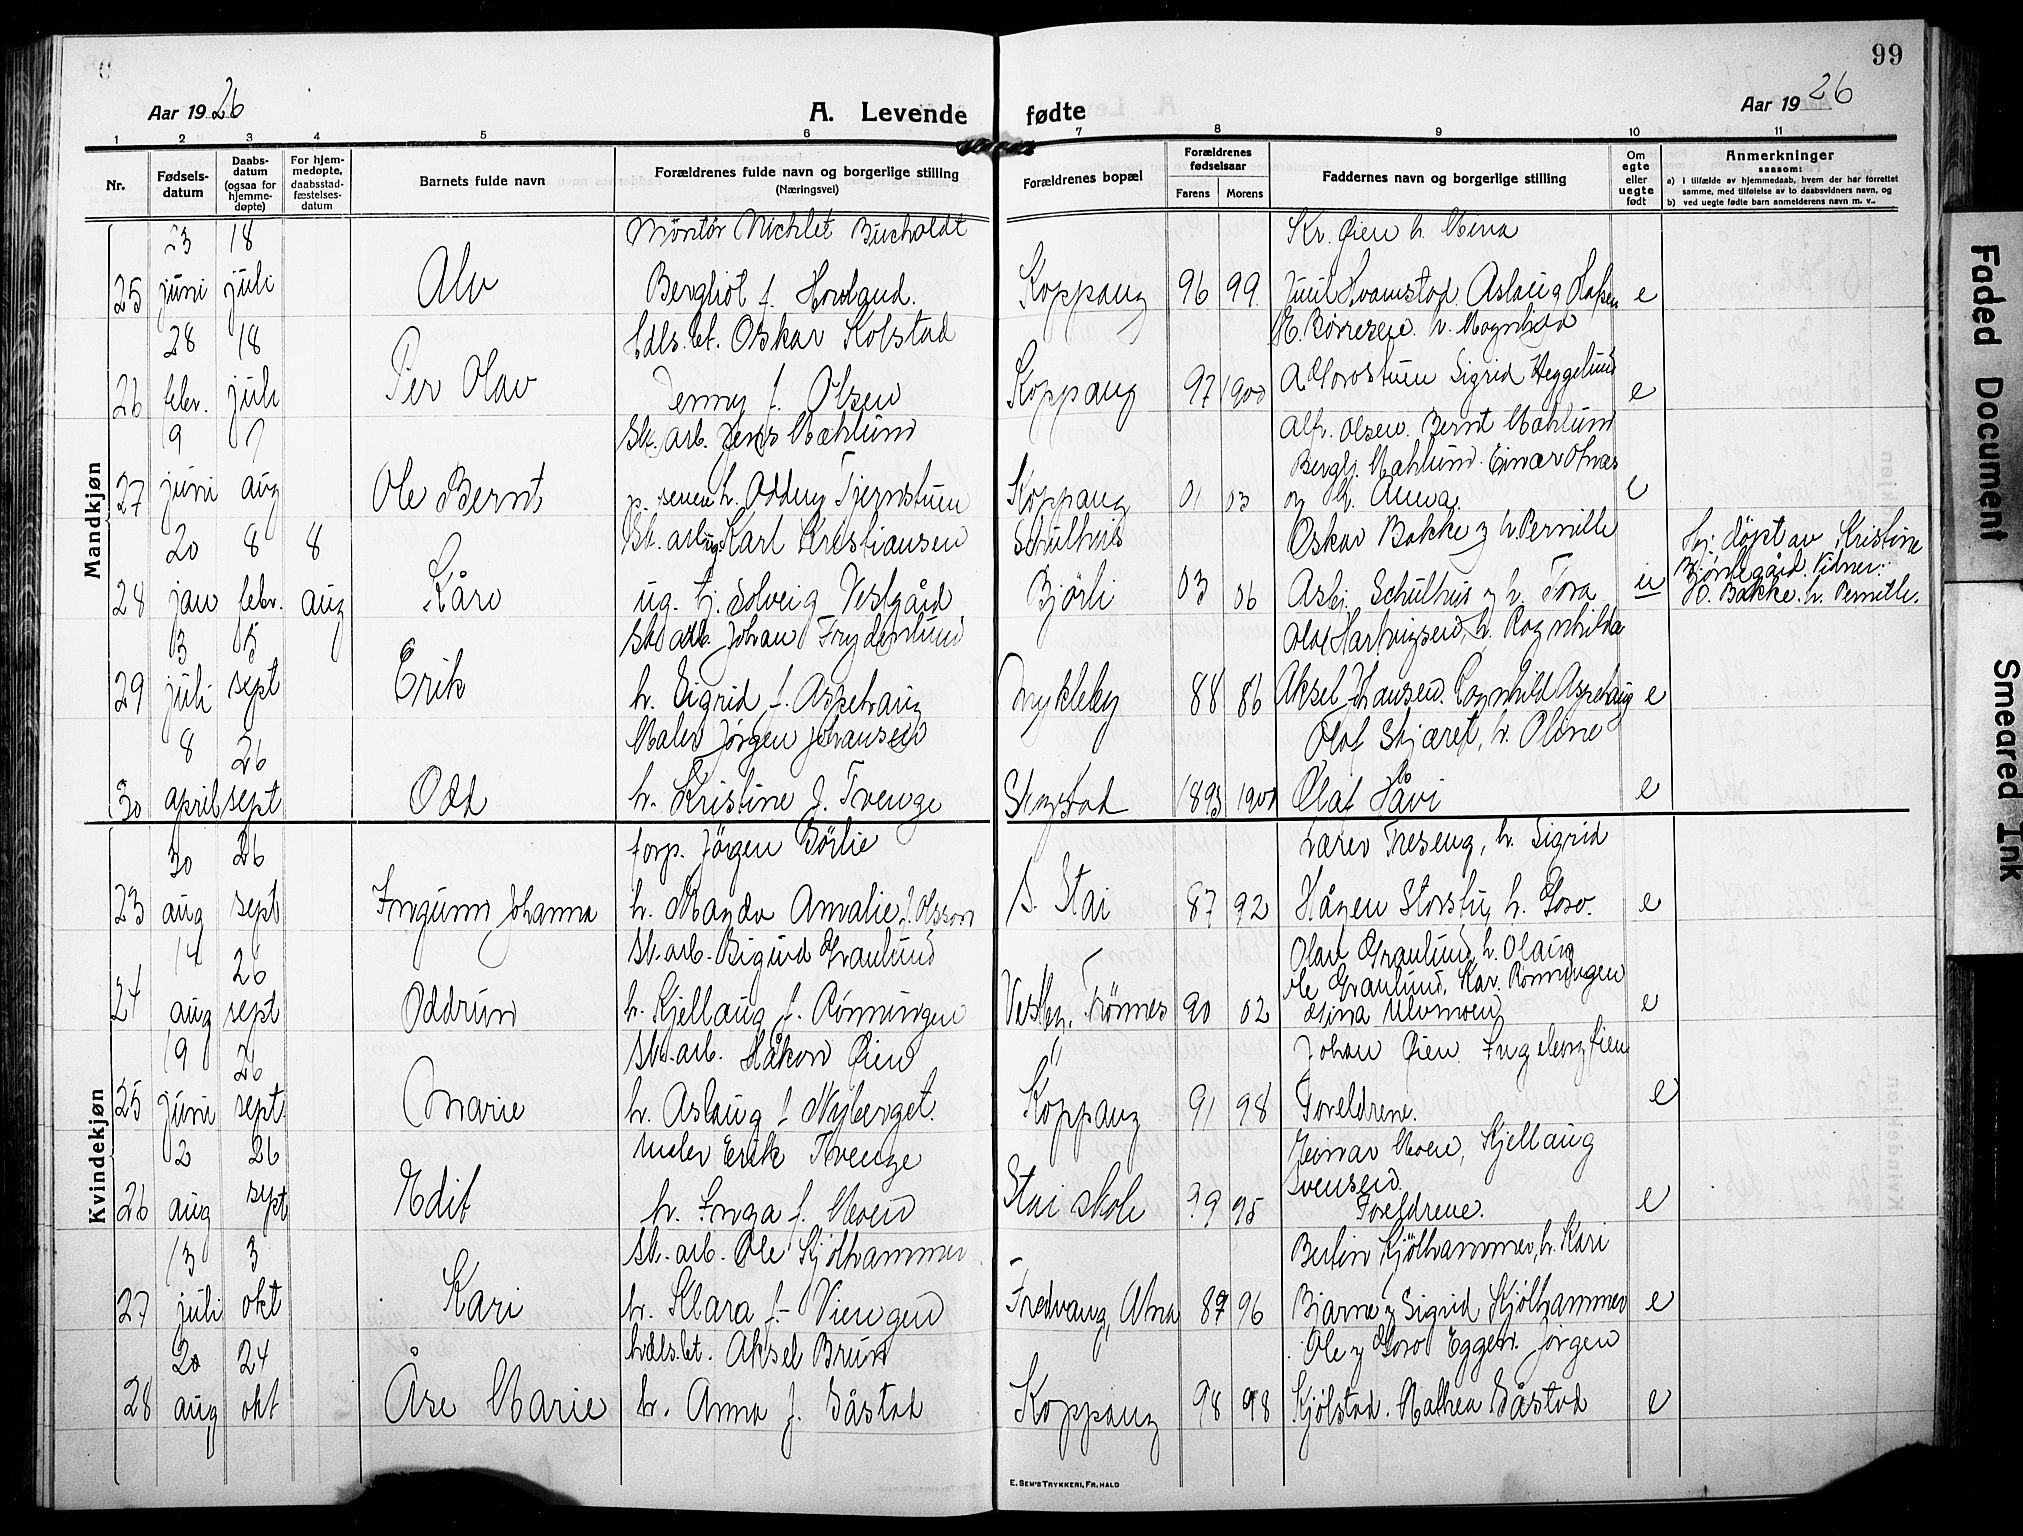 99
Aar 1926
A. Levende fødte
Aar 1926
1 2 3 4 5 6 7 8 9 10 11
Nr.
Fødsels-
datum
Daabs-
datum
(ogsaa for
hjemme-
døpte)
For hjem-
medøpte,
daabsstad-
fæstelses-
datum
Barnets fulde navn
Forældrenes fulde navn og borgerlige stilling
(Næringsvei)
Forældrenes bopæl
Forældrenes
fødselsaar
Farens Morens
Faddernes navn og borgerlige stilling
Om
egte
eller
uegte
født
Anmerkninger
saasom:
a) i tilfælde av hjemmedaab, hvem der har forrettet
samme, med tilføielse av to daabsvidners navn, og
b) ved uegte fødte barn anmelderens navn m. v..
Mandkjøn
23 18 Montør Michlet Bucholdt Kr. Øien h. Mena
25 juni juli Alv Bergliot f. Hovland. Koppang 96 99 Juul Hvamstad Aslaug e
28 18 Hdls.bt. Oskar Kolstad E. Børresen. h. Magnhild
26 febr. juli Per Olav Jenny f. Olsen Koppang 97 1900 Sigrid Heggelund e
9 7 Sk. arb. Jens Mæhlum Alfr. Olsen. Bernt Mæhlum
Mæhlum. Einar
27 juni aug Ole Bernt h. Oddny Tjernstuen Koppang 01 03 og h. Anna. e
20 8 8 Sk. arb. ug. Karl Kristiansen Schulhus Oskar Bakke og h. Pernille Hj. døpt av Kristine
28 jan febr. aug Kåre ug. tj. Solveig Vestgård Bjørli 03 06 Asbj. Schulhus og h. Tora u Bjørnegård. Vidner:
O. Bakke. h. Pernille.
3 5 Sk. arb. Johan Frydenlund Olaf Hartvigsen, h. Ragnhilda
29 juli sept Erik h. Sigrid f. Aspehaug Mykleby 88 86 Aksel Johansen. Ragnhild Aspehaug e
8 26 Maler Jørgen Johansen Olaf Skjæret, h. Oline
30 april sept Odd h. Kristine f. Tvenge 1893 1900 Olaf Håvi e
Kvindekjøn
30 26 forp. Jørgen Børlie Lærer Treseng, h. Sigrid
23 aug sept Ingunn Johanna h. Magda Amalie f. Olsson S. Stai 87 92 Hågen Storstu, h. Goro. e
14 26 Sk. arb. Sigurd Granlund Olav Granlund, h. Olaug
Ole Granlund, Kar. Rønningen
24 aug sept Oddrun h. Kjellaug f. Rønningen Vestby, Trønnes 90 02 e
19 26 Sk. arb. Håkon Øien Johan Øien Ingeborg Øien
25 juni sept Marie h. Aslaug f. Nyberget. Koppang 91 98 Foreldrene. e
2 26 Maler Erik Tvenge Einar Moen, Kjellaug
Svensen.
26 aug sept Edit h. Inga f. Moen Stai skole 99 95 Foreldrene. e
13 3 Sk. arb. Ole Kjølhammer Bertin Kjølhammer, h. Kari
27 juli okt Kari h. Klara f. Viengen Fredvang, Atna 87 96 Bjarne og Sigrid Kjølhammer e
20 24 Hdls.bt. Aksel Brun Ole og Goro Eggen. Jørgen
28 aug okt Åse Marie h. Anna f. Såstad Koppang 98 98 Kjølstad. Mathea Såstad e
E. SEM'S TRYKKERI, FR. HALD
Faded Document
Smeared Ink